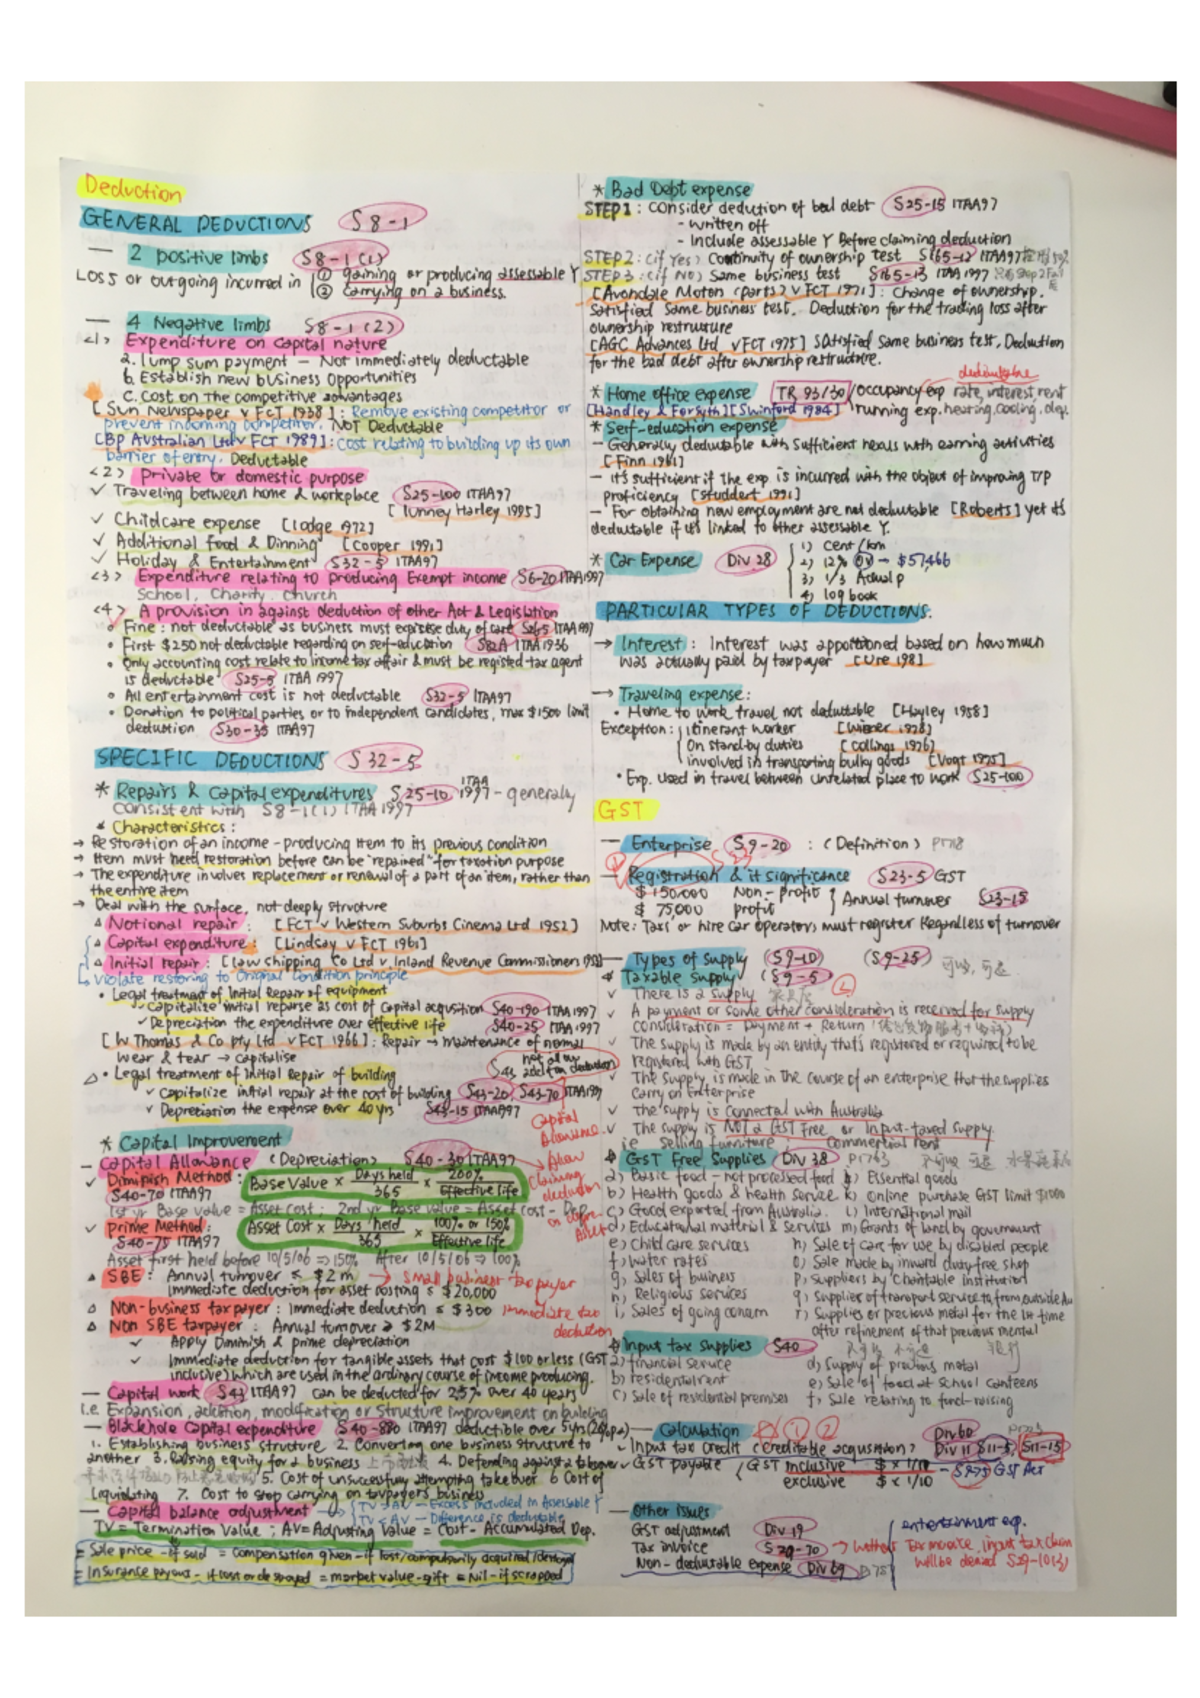 Deduction
GENERAL DEDUCTIONS S 8-1
— 2 positive limbs S8-1(1)
Loss or outgoing incurred in ① gaining or producing assessable Y
② carrying on a business.
— 4 Negative limbs S8-1(2)
<1> Expenditure on capital nature
a. lump sum payment — Not immediately deductable
b. Establish new business opportunities
c. Cost on the competitive advantages
[Sun Newspaper v FCT 1938]: Remove existing competitor or
prevent incoming competitor. NOT Deductable
[BP Australian Ltd v FCT 1989]: cost relating to building up its own
barrier of entry. Deductable
<2> Private or domestic purpose
✓ Traveling between home & workplace S25-100 ITAA97
✓ Childcare expense [Lodge 1972]
✓ Additional food & Dinning [Cooper 1991]
✓ Holiday & Entertainment S32-5 ITAA97
<3> Expenditure relating to producing Exempt income S6-20 ITAA1997
School, Charity, Church
<4> A provision in against deduction of other Act & Legislation
• Fine: not deductable as business must expresise duty of care S26-5 ITAA1997
• First $250 not deductable regarding on self-education S82A ITAA1936
• Only accounting cost relate to income tax affair & must be registed tax agent
is deductable S25-5 ITAA 1997
• All entertainment cost is not deductable S32-5 ITAA97
• Donation to political parties or to independent candidates, max $1500 limit
deduction S30-35 ITAA97
SPECIFIC DEDUCTIONS S 32-5
* Repairs & Capital expenditures S25-10 ITAA 1997 - generally
consistent with S8-1(1) ITAA 1997
* Characteristics:
→ Restoration of an income - producing item to its previous condition
→ Item must need restoration before can be "repaired" for taxation purpose
→ The expenditure involves replacement or renewal of a part of an item, rather than
the entire item
→ Deal with the surface, not deeply structure
△ Notional repair: [FCT v Western Suburbs Cinema Ltd 1952]
△ Capital expenditure: [Lindsay v FCT 1961]
△ Initial repair: [Law Shipping Co Ltd v. Inland Revenue Commissioner
↳ Violate restoring to original condition principle
• Legal treatment of Initial Repair of equipment
✓ Capitalize initial repairs as cost of Capital acqusition S40-190 ITAA1997
✓ Depreciation the expenditure over effective life S40-25 ITAA1997
[W Thomas & Co pty Ltd v FCT 1966]: Repair → maintenance of normal
wear & tear → Capitalise
△ • Legal treatment of Initial Repair of building
✓ Capitalize initial repair at the cost of building S43-20, S43-70 ITAA1997
✓ Depreciation the expense over 40 yrs S43-15 ITAA97
* Capital Improvement
— Capital Allowance (Depreciation) S40-30 ITAA97
✓ Diminish Method: Base Value × Days held/365 × 200%/Effective life
S40-70 ITAA97
1st yr Base value = Asset cost; 2nd yr Base value = Asset cost - Dep.
✓ Prime Method: Asset Cost × Days held/365 × 100% or 150%/Effective life
S40-75 ITAA97
Asset first held before 10/5/06 ⇒ 150% After 10/5/06 ⇒ 100%
Capital Allowance → Allow claiming deduction on
△ SBE: Annual turnover ≤ $2m → small business taxpayer
Immediate deduction for asset costing ≤ $20,000
△ Non-business taxpayer: Immediate deduction ≤ $300 immediate tax deduction
△ Non SBE taxpayer: Annual turnover ≥ $2M
✓ Apply Diminish & prime depreciation
✓ Immediate deduction for tangible assets that cost $100 or less (GST
inclusive) which are used in the ordinary course of income producing.
— Capital work S43 ITAA97 can be deducted for 2.5% over 40 years
i.e. Expansion, addition, modification or structure improvement on building
— Blackhole Capital expenditure S40-880 ITAA97 deductible over 5yrs (20% p.a)
1. Establishing business structure 2. Converting one business structure to
another 3. Raising equity for a business 4. Defending against a takeover
5. Cost of unsuccessfully attempting takeover 6 Cost of
liquidating 7. Cost to stop carrying on taxpayers business
— Capital balance adjustment → TV > AV — Excess included in Assessable Y
TV < AV — Difference is deductable
TV = Termination Value; AV = Adjusting Value = Cost - Accumulated Dep.
= Sale price - if sold = Compensation given - if lost/compulsorily acquired/destroyed
= Insurance payout - if lost or destroyed = market value - gift = Nil - if scrapped
* Bad Debt expense
STEP1: Consider deduction of bad debt S25-15 ITAA97
- written off
- Include assessable Y Before claiming deduction
STEP2: (if Yes) Continuity of ownership test S165-12 ITAA97
STEP3: (if No) Same business test S165-13 ITAA 1997
[Avondale Motors (parts) v FCT 1971]: Change of ownership.
Satisfied same business test. Deduction for the trading loss after
ownership restructure
[AGC Advances Ltd v FCT 1975] Satisfied same business test, Deduction
for the bad debt after ownership restructure.
deductable
* Home office expense TR 93/30 / occupancy exp rate, interest, rent
[Handley & Forsyth] [Swinford 1984] \ running exp. heating, cooling, dep.
* Self-education expense
— Generally deductable with sufficient nexus with earning activities
[Finn 1961]
— it's sufficient if the exp is incurred with the object of improving T/P
proficiency [Studdert 1991]
— For obtaining new employment are not deductable [Roberts] yet it's
deductable if it's linked to other assessable Y.
* Car Expense Div 28 1) cent/km
2) 12% OV - $57,466
3) 1/3 Actual p
4) log book
PARTICULAR TYPES OF DEDUCTIONS:
→ Interest: Interest was apportioned based on how much
was actually paid by taxpayer [Ure 1981]
→ Traveling expense:
• Home to work travel not deductable [Hayley 1958]
Exception: itinerant worker
On stand by duties [Collings 1976]
involved in transporting bulky goods [Vogt 1975]
• Exp. used in travel between unrelated place to work S25-100
GST
— Enterprise S9-20 : (Definition)
— Registration & it significance S23-5 GST
$150,000 Non-profit } Annual turnover S23-15
$ 75,000 profit
Note: Taxi or hire car operators must register Regardless of turnover
— Types of Supply (S9-10) (S9-25)
* Taxable supply (S9-5)
✓ There is a supply
✓ A payment or some other consideration is reserved for supply
Consideration = Payment + Return
✓ The supply is made by an entity that's registered or required to be
registered with GST
✓ The supply is made in the course of an enterprise that the supplies
carry on Enterprise
✓ The supply is connected with Australia
✓ The supply is NOT a GST Free or Input-taxed supply.
i.e Selling furniture; Commercial rent
* GST Free Supplies Div 38
a) Basic food - not processed food j) Essential goods
b) Health goods & health service k) Online purchase GST limit $1000
c) Good exported from Australia. l) International mail
d) Educational material & services m) Grants of land by government
e) Child care services n) Sale of cars for use by disabled people
f) water rates o) Sale made by inward duty-free shop
g) Sales of business p) Suppliers by Charitable Institution
h) Religious services q) Supplies of transport service to, from outside Au
i) Sales of going concern r) Supplies or precious metal for the 1st time
after refinement of that previous mental
* Input tax supplies S40
a) financial service d) Supply of precious metal
b) residential rent e) Sale of food at School canteens
c) Sale of residential premises f) Sale relating to fund-raising
— Calculation ① ② Div 60
✓ Input tax credit (creditable acqusition) Div 11 S11-5, S11-15
✓ GST payable (GST inclusive $ × 1/11 - S9-75 GST Act
exclusive $ × 1/10
— Other issues
GST adjustment Div 19
Tax invoice S 29-70 → without Tax invoice, input tax claim
will be denied S29-10(3)
Non-deductable expense Div 69 entertainment exp.